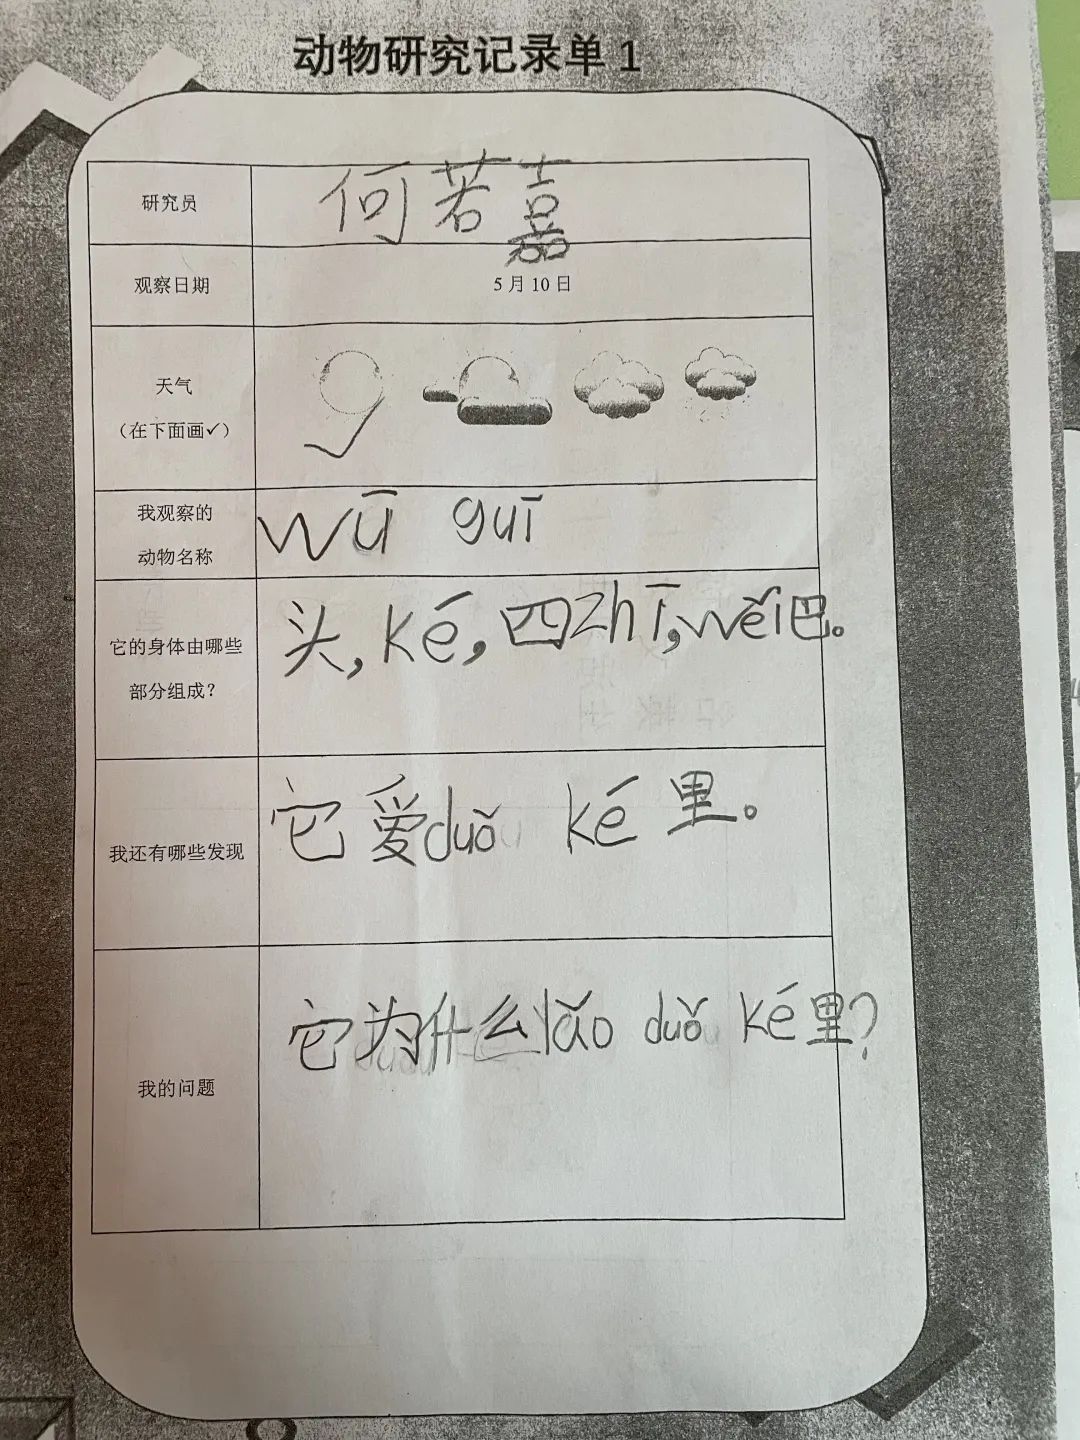 动物研究记录单1
研究员
何若嘉
观察日期
5月10日
天气
（在下面画✓）
我观察的
动物名称
wū guī
它的身体由哪些
部分组成？
头，ké，四zhī，wěi巴。
我还有哪些发现
它爱duǒ ké里。
我的问题
它为什么lǎo duǒ ké里？